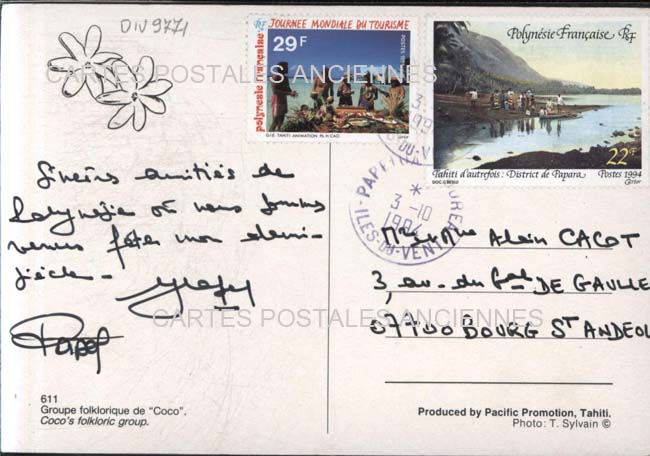 DIV9771
CARTES POSTALES ANCIENNES
JOURNEE MONDIALE DU TOURISME
29F
polynésie française
G.I.E. TAHITI ANIMATION
Polynésie Française RF
22F
Tahiti d'autrefois: District de Papara
Postes 1994
* 
3-10
1994
ILES-DU-VENT
Sincères amitiés de
Polynésie où nous sommes
venus fêter mon demi-
siècle-
Mr & Mme Alain CACOT
3, av. du Gal DE GAULLE
07700 BOURG St ANDEOL
CARTES POSTALES ANCIENNES
611
Groupe folklorique de "Coco".
Coco's folkloric group.
Produced by Pacific Promotion, Tahiti.
Photo: T. Sylvain ©